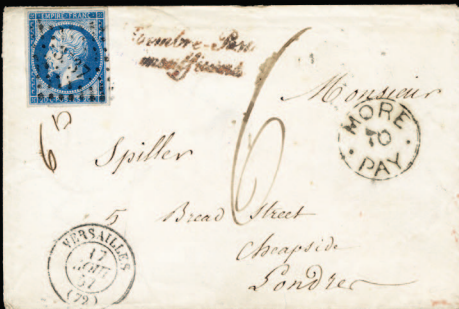 EMPIRE FRANC
Timbre-Poste
insuffisant
6
Monsieur
MORE
TO
PAY
Spiller
5 Bread Street
Cheapside
Londres
VERSAILLES
17
AOUT
57
(72)